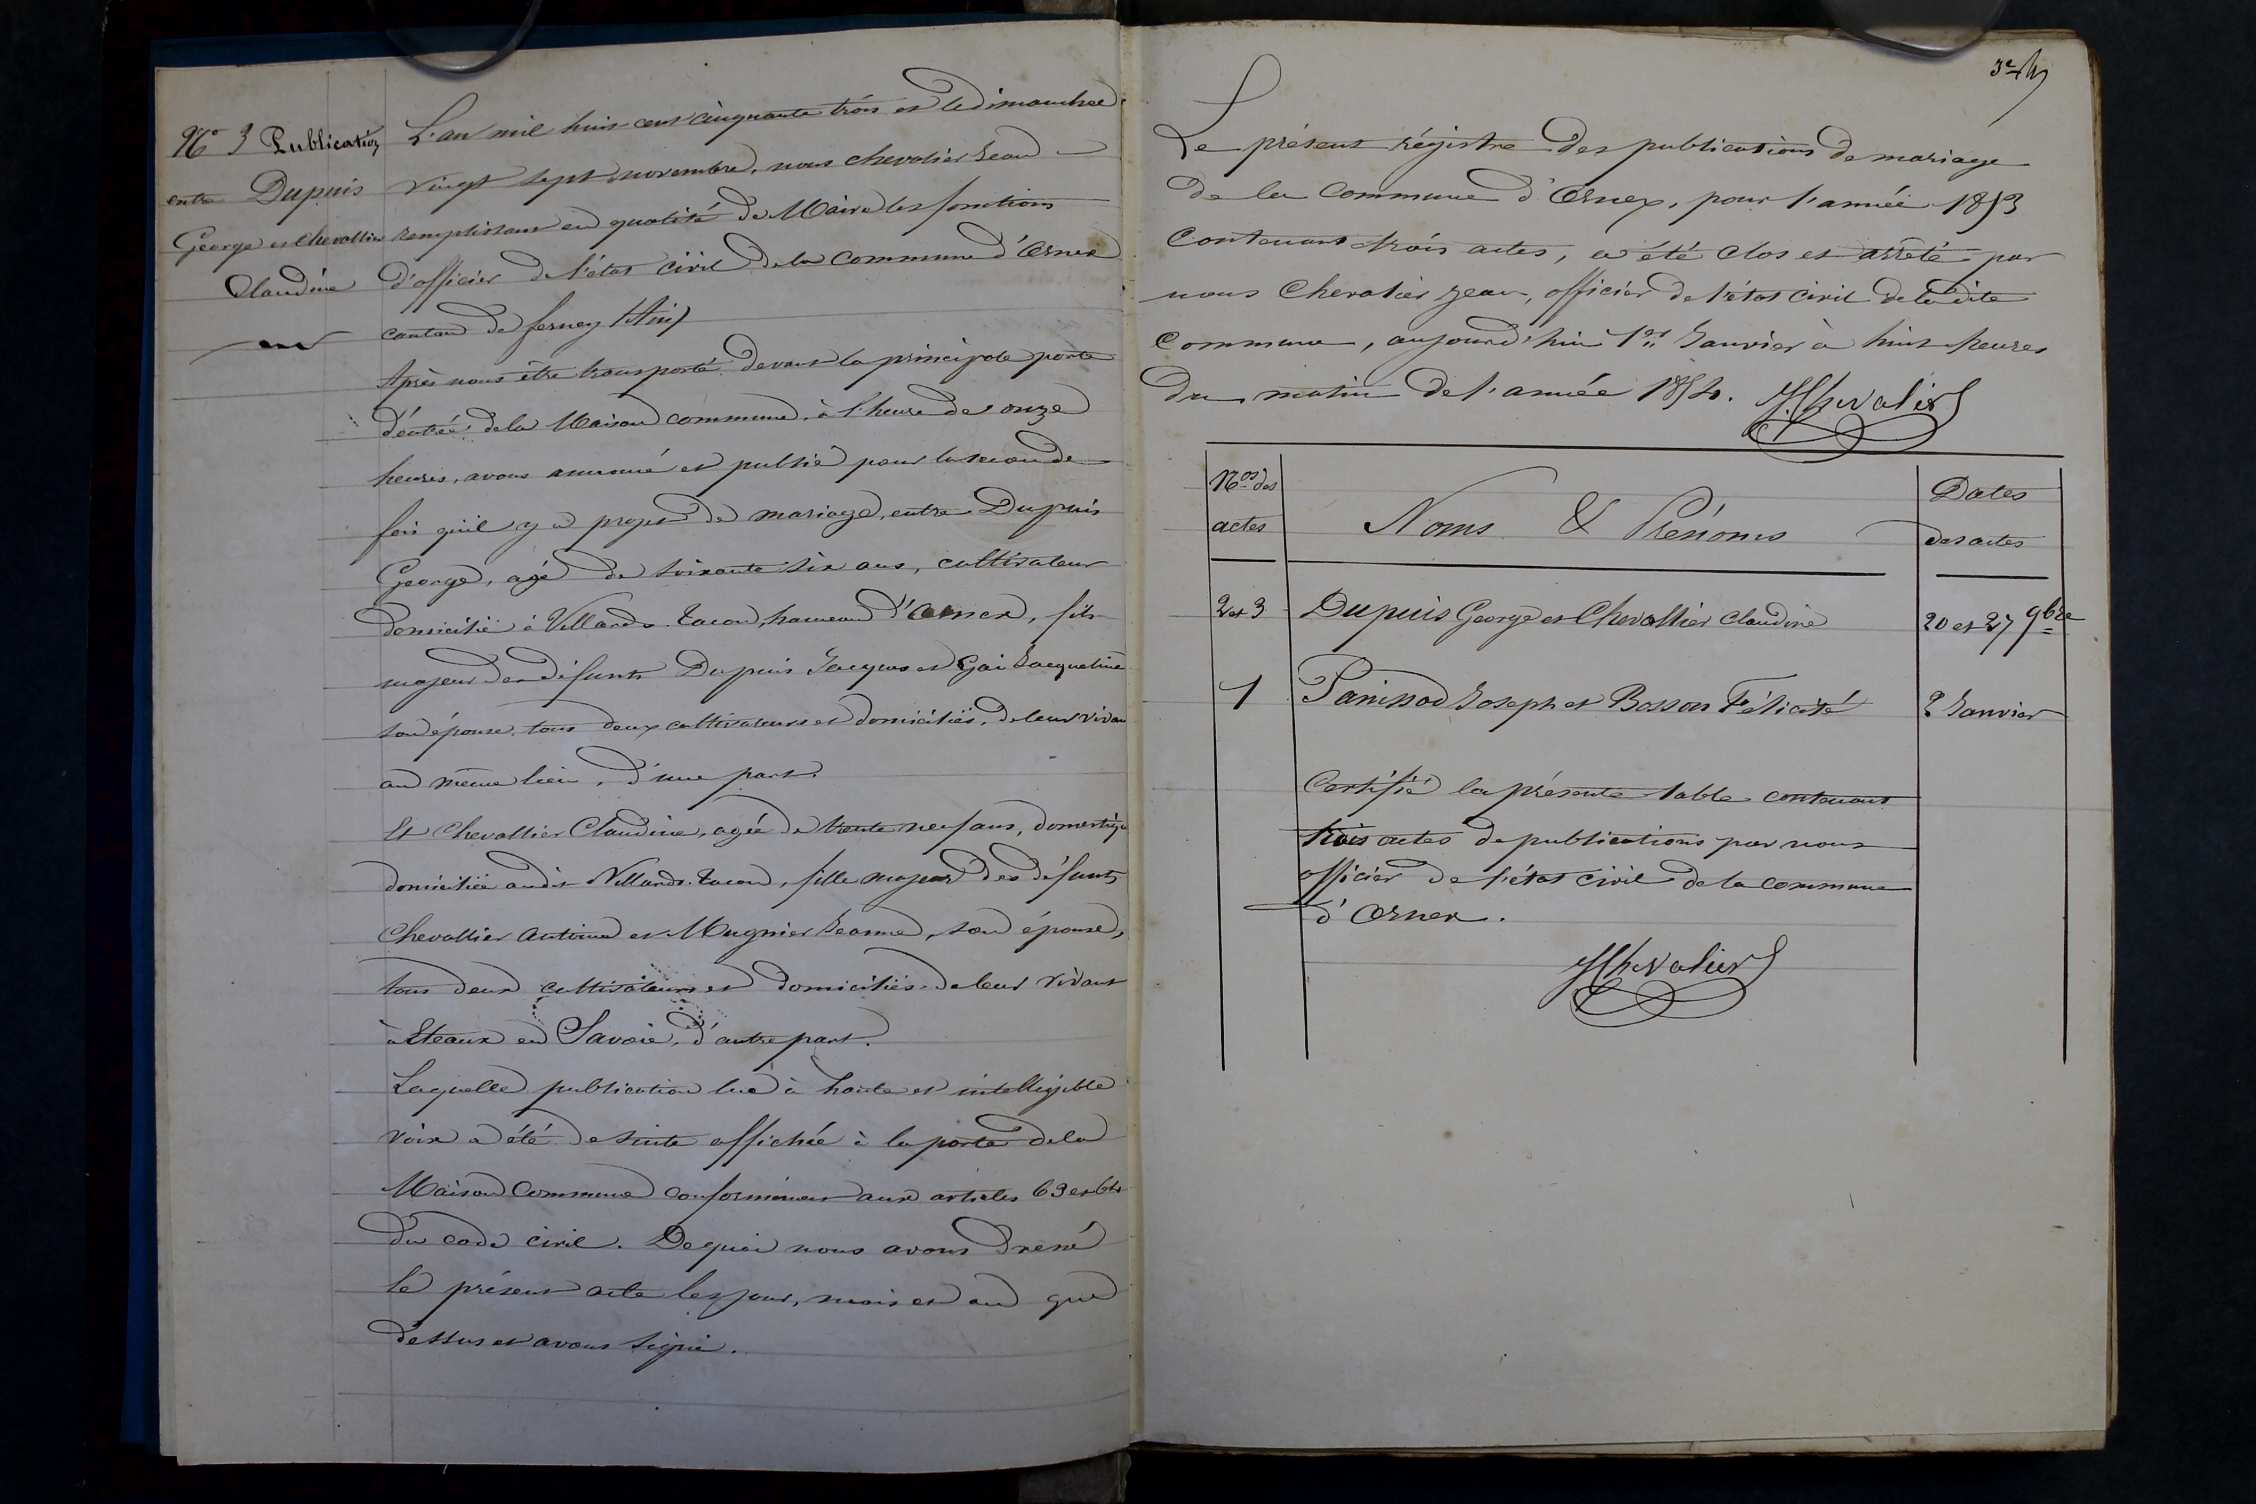 N° 3 Publication
entre Dupuis
George et Chevallier
Claudine
L'an mil huit cent cinquante trois et le dimanche
vingt sept novembre, nous Chevalier Jean
remplissant en qualité de Maire les fonctions
d'officier de l'état civil de la commune d'Ornex
canton de ferney (Ain)
Après nous être transporté devant la principale porte
d'entrée de la Maison commune, à l'heure de onze
heures, avons annoncé et publié pour la seconde
fois qu'il y a projet de mariage, entre Dupuis
George, agé de soixante six ans, cultivateur
domicilié à Villards-Tacon, hameau d'Ornex, fils
majeur des défunts Dupuis Jacques et Gai Jacqueline
son épouse, tous deux cultivateurs et domiciliés, de leur vivant
au même lieu, d'une part.
Et Chevallier Claudine, agée de trente neuf ans, domestique
domiciliée audit Villards-Tacon, fille majeur des défunts
Chevallier Antoine et Mugnier Jeanne, son épouse,
tous deux cultivateurs et domiciliés de leur vivant
à Eteaux en Savoie, d'autre part.
Laquelle publication lue à haute et intelligible
voix a été de suite affichée à la porte de la
Maison Commune conformément aux articles 63 et 64
du code civil. De quoi nous avons dressé
le présent acte les jour, mois et an que
dessus et avons signé.
Le présent régistre des publications de mariage
de la Commune d'Ornex, pour l'année 1853
Contenant trois actes, a été clos et arrêté par
nous Chevalier Jean, officier de l'état civil de la dite
Commune, aujourd'hui 1er Janvier à huit heures
du matin de l'année 1854. JChevalier
Nos des
actes
Noms & Prénoms
Dates
des actes
2 et 3 Dupuis George et Chevallier Claudine 20 et 27 9bre
1 Panissod Joseph et Bosson Félicité 2 Janvier
Certifié la présente table contenant
trois actes de publications par nous
officier de l'état civil de la commune
d'Ornex.
JChevalier